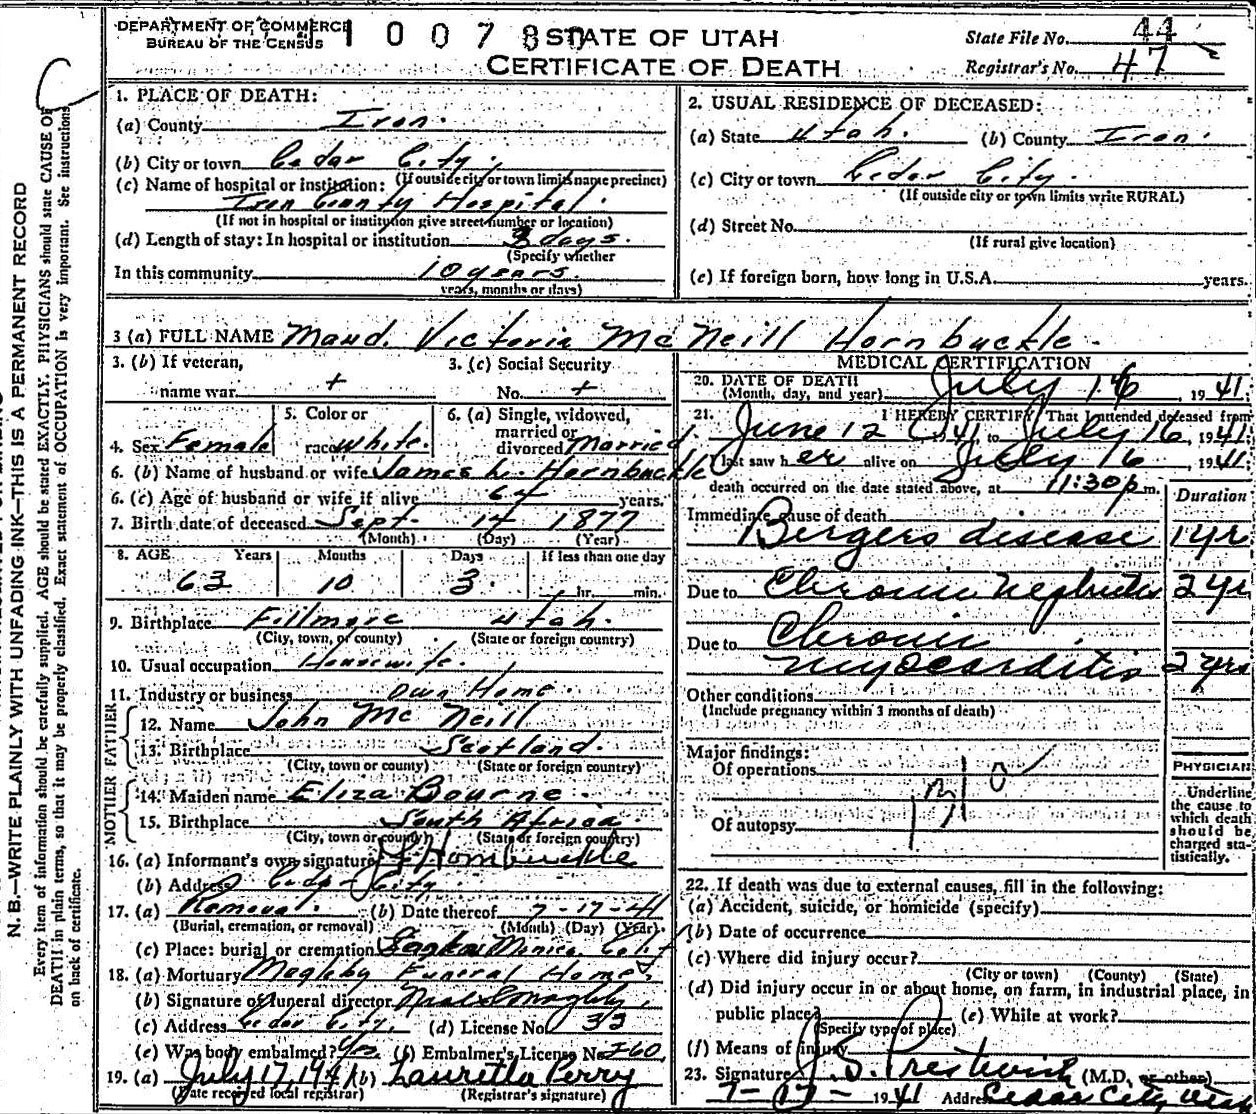 DEPARTMENT OF COMMERCE
BUREAU OF THE CENSUS
1 0 0 7 8
STATE OF UTAH
CERTIFICATE OF DEATH
State File No. 44
Registrar's No. 47
N. B.—WRITE PLAINLY WITH UNFADING INK—THIS IS A PERMANENT RECORD
Every item of information should be carefully supplied. AGE should be stated EXACTLY. PHYSICIANS should state CAUSE OF
DEATH in plain terms, so that it may be properly classified. Exact statement of OCCUPATION is very important. See instructions
on back of certificate.
1. PLACE OF DEATH:
(a) County Iron.
(b) City or town Cedar City.
(If outside city or town limits name precinct)
(c) Name of hospital or institution:
Iron County Hospital.
(If not in hospital or institution give street number or location)
(d) Length of stay: In hospital or institution 3 days.
(Specify whether
In this community 10 years.
years, months or days)
2. USUAL RESIDENCE OF DECEASED:
(a) State Utah. (b) County Iron.
(c) City or town Cedar City.
(If outside city or town limits write RURAL)
(d) Street No.
(If rural give location)
(e) If foreign born, how long in U.S.A. years.
3 (a) FULL NAME Maud. Victoria McNeill Hornbuckle.
3. (b) If veteran,
name war +
3. (c) Social Security
No. +
4. Sex Female
5. Color or
race White.
6. (a) Single, widowed,
married or
divorced Married.
6. (b) Name of husband or wife James L. Hornbuckle
6. (c) Age of husband or wife if alive 64 years.
7. Birth date of deceased Sept. 14 1877
(Month) (Day) (Year)
8. AGE Years Months Days If less than one day
63 10 3. hr. min.
9. Birthplace Fillmore Utah.
(City, town, or county) (State or foreign country)
10. Usual occupation Housewife.
11. Industry or business Own Home.
FATHER
12. Name John McNeill
13. Birthplace Scotland.
(City, town, or county) (State or foreign country)
MOTHER
14. Maiden name Eliza Bourne.
15. Birthplace South Africa.
(City, town or county) (State or foreign country)
16. (a) Informant's own signature Hornbuckle
(b) Address Cedar City.
17. (a) Removal. (b) Date thereof 7-17-41
(Burial, cremation, or removal) (Month) (Day) (Year)
(c) Place: burial or cremation Santa Monica Calif
18. (a) Mortuary Magleby Funeral Home.
(b) Signature of funeral director
(c) Address Cedar City. (d) License No. 33
(e) Was body embalmed? Yes (f) Embalmer's License No. 260
19. (a) July 17, 1941 (b) Lauretta Perry
(Date received local registrar) (Registrar's signature)
MEDICAL CERTIFICATION
20. DATE OF DEATH July 16 1941.
(Month, day, and year)
21. I HEREBY CERTIFY That I attended deceased from
June 12 1941, to July 16, 1941.
last saw her alive on July 16, 1941.
death occurred on the date stated above, at 11:30 p. m.
Duration
Immediate cause of death
Bergers disease 1 yr.
Due to Chronic Nephritis 2 yr
Due to Chronic
myocarditis 2 yrs
Other conditions
(Include pregnancy within 3 months of death)
Major findings:
Of operations
131
Of autopsy
PHYSICIAN
Underline
the cause to
which death
should be
charged sta-
tistically.
22. If death was due to external causes, fill in the following:
(a) Accident, suicide, or homicide (specify)
(b) Date of occurrence
(c) Where did injury occur?
(City or town) (County) (State)
(d) Did injury occur in or about home, on farm, in industrial place, in
public place? (e) While at work?
(Specify type of place)
(f) Means of injury
23. Signature J. S. Prestwich (M.D. or other)
7-17-1941 Address Cedar City Utah